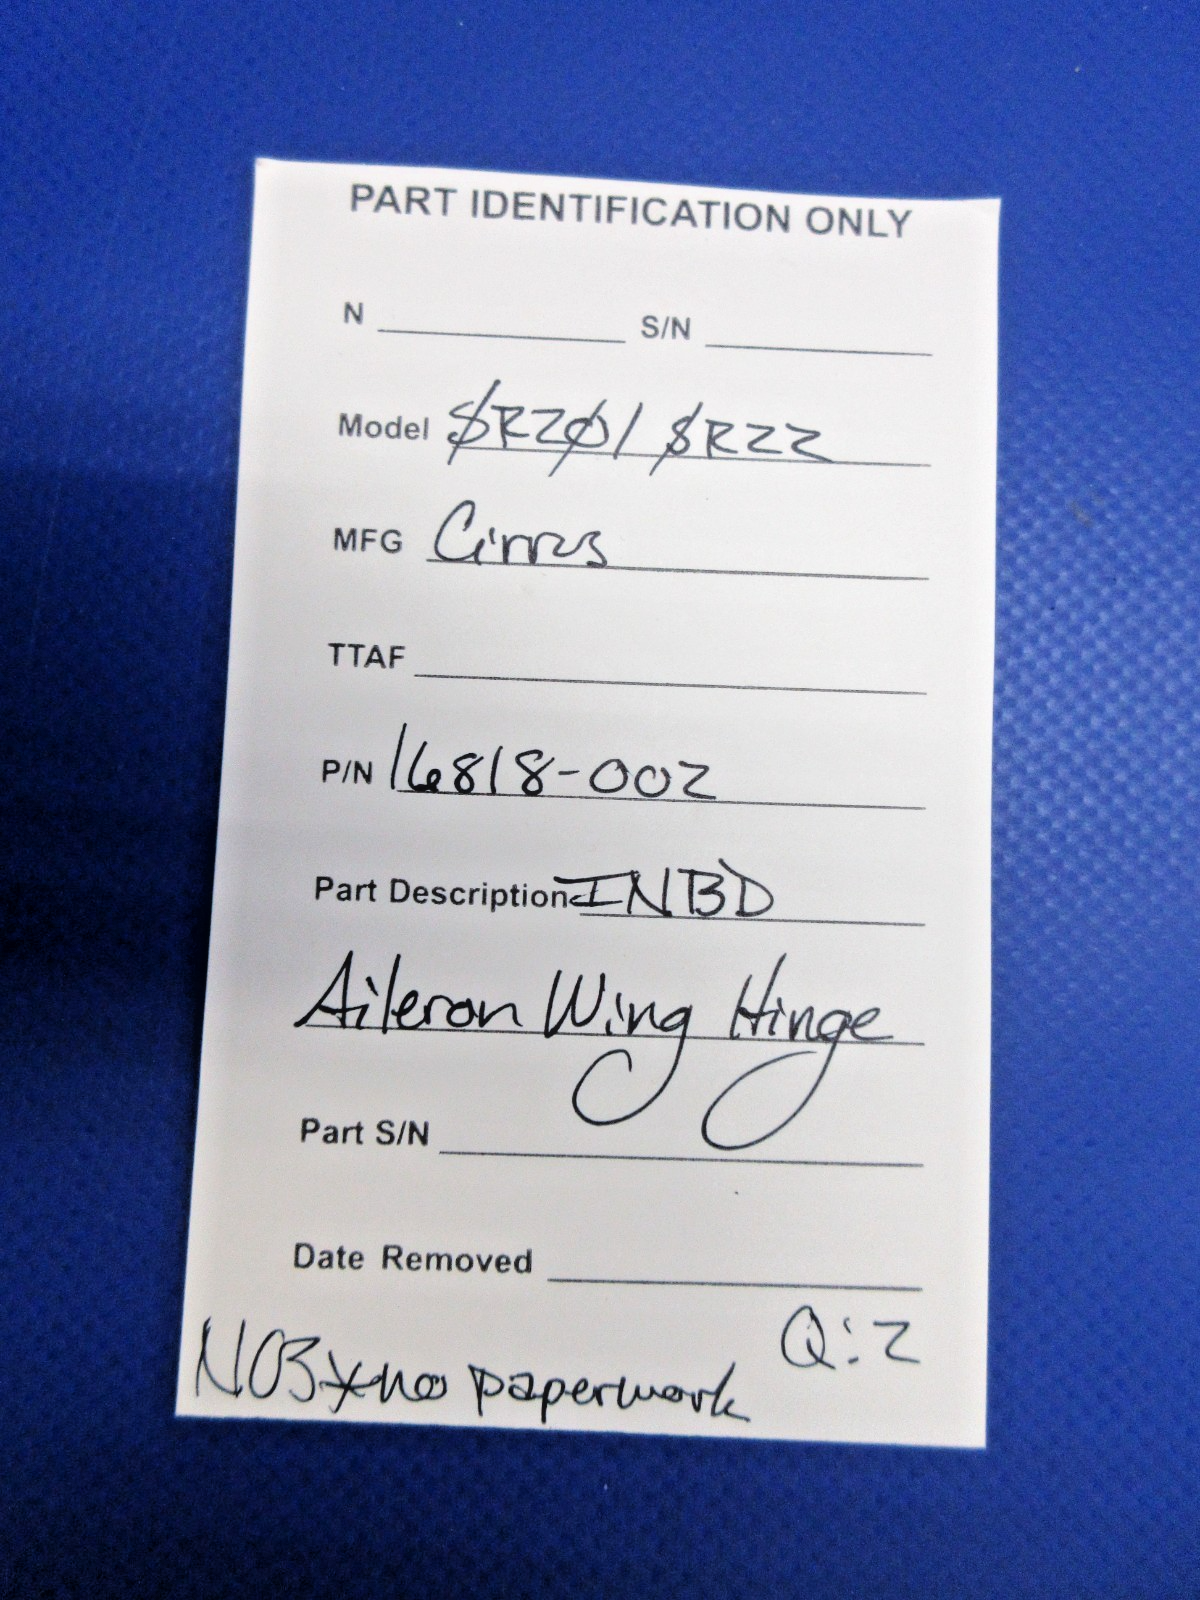 PART IDENTIFICATION ONLY
N S/N
Model SR20/ SR22
MFG Cirrus
TTAF
P/N 16818-002
Part Description INBD
Aileron Wing Hinge
Part S/N
Date Removed
Q:2
NOS*no paperwork